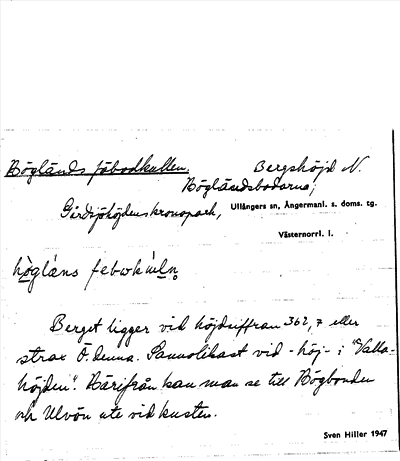 Höglands fäbodkullen, Bergshöjd N.
Höglandsbodarna;
Gårdsjöhöjdens kronopark, Ullångers sn, Ångermanl. s. doms. tg.
Västernorrl. l.
hòglàns febωkùln̥
Berget ligger vid höjdsiffran 362,7 eller
strax Ö. denna. Sannolikast vid -höj- i "Valla-
höjden". Härifrån kan man se till Högbonden
och Ulvön ute vid kusten.
Sven Hiller 1947